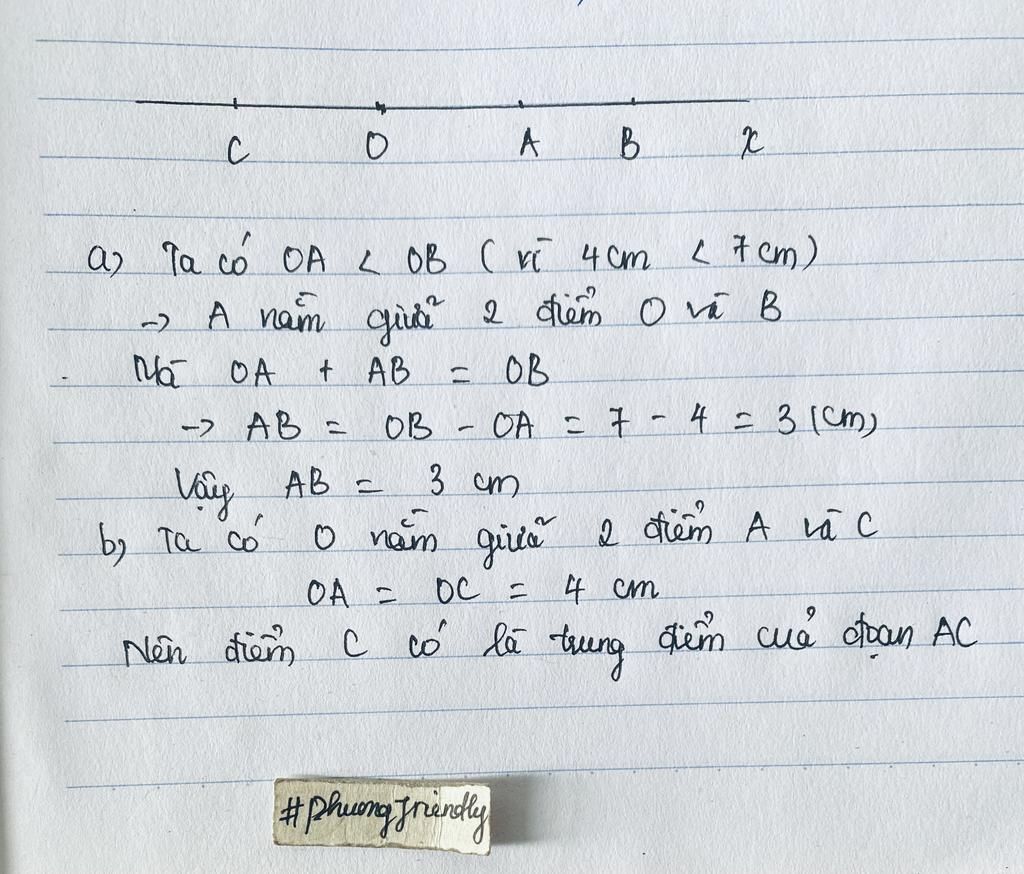 C O A B x
a) Ta có OA < OB ( vì 4cm < 7cm)
-> A nằm giữa 2 điểm O và B
Mà OA + AB = OB
-> AB = OB - OA = 7 - 4 = 3 (cm)
Vậy AB = 3 cm
b) Ta có O nằm giữa 2 điểm A và C
OA = OC = 4 cm
Nên điểm C có là trung điểm của đoạn AC
#phuongfriendly